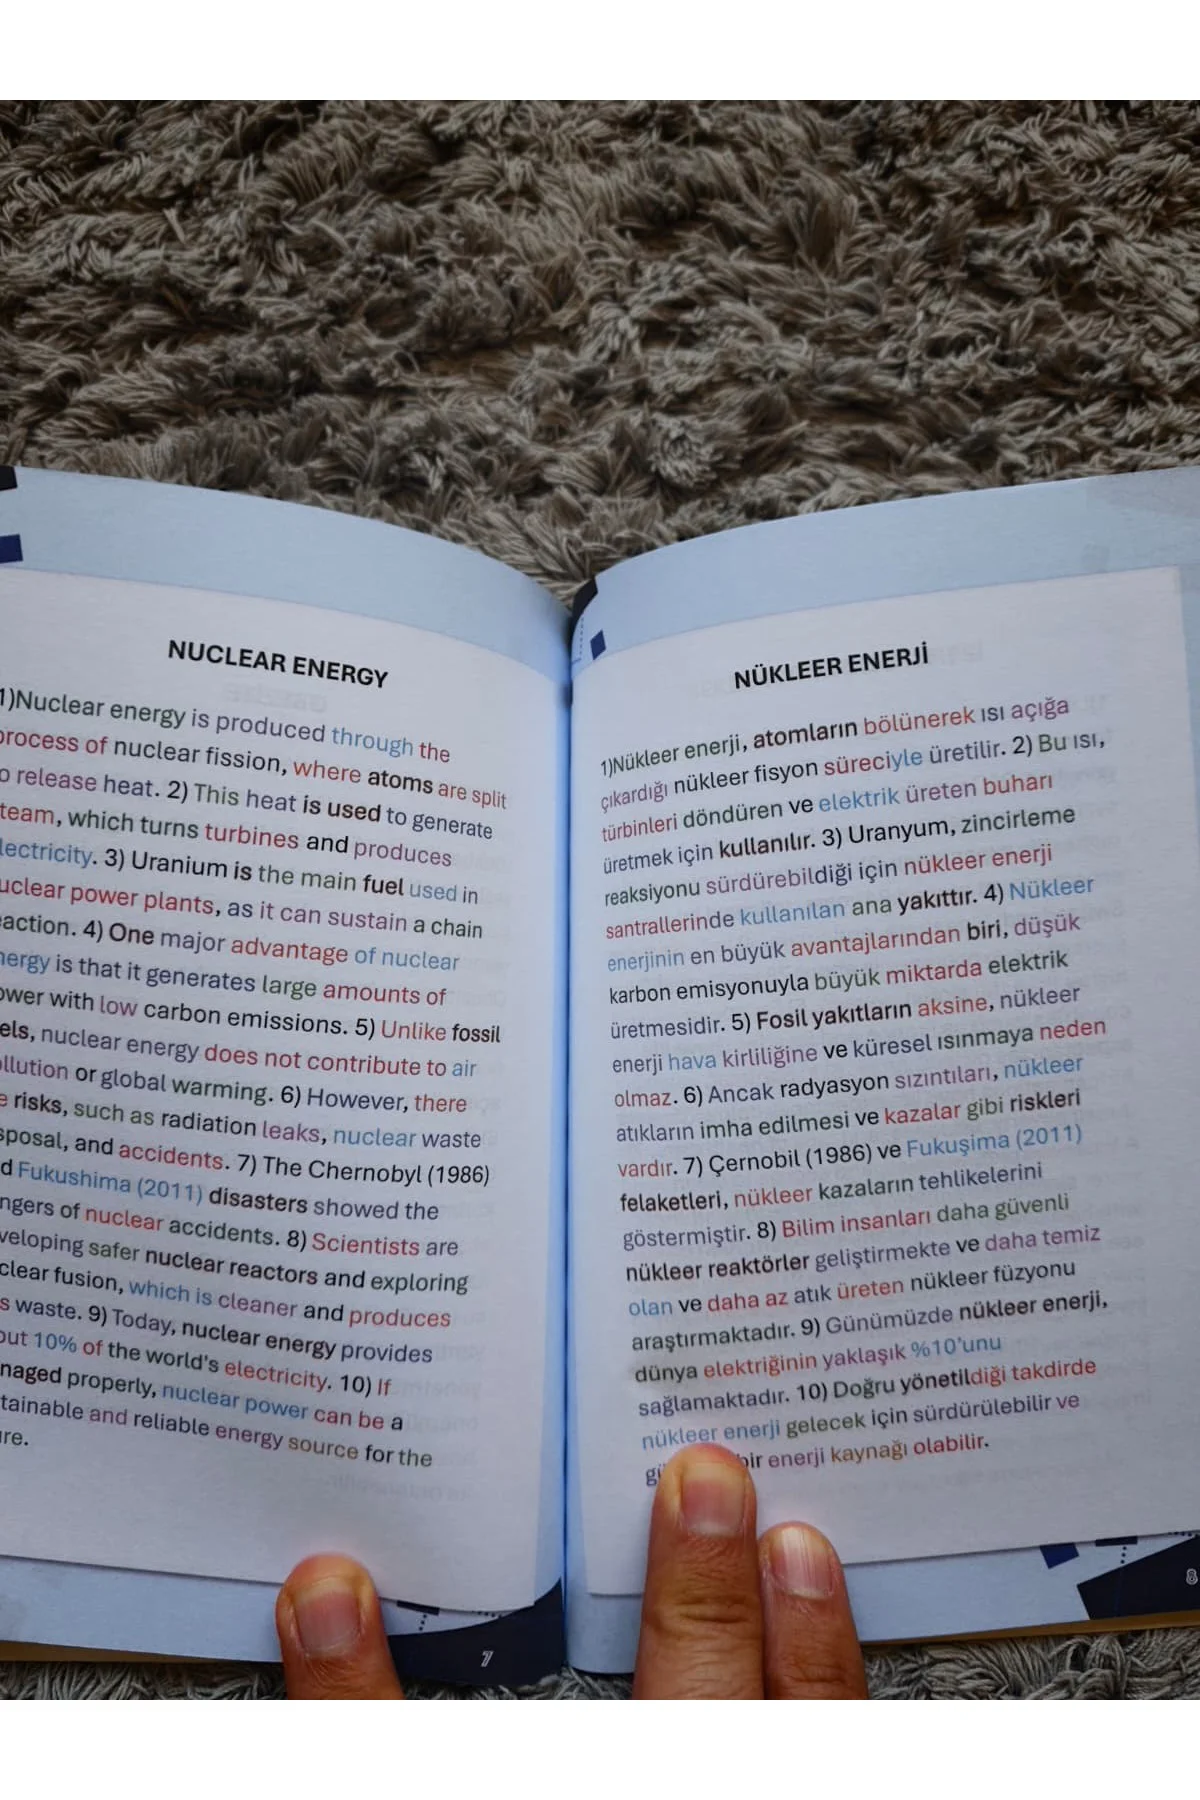 NUCLEAR ENERGY
1)Nuclear energy is produced through the
process of nuclear fission, where atoms are split
o release heat. 2) This heat is used to generate
team, which turns turbines and produces
lectricity. 3) Uranium is the main fuel used in
uclear power plants, as it can sustain a chain
eaction. 4) One major advantage of nuclear
nergy is that it generates large amounts of
ower with low carbon emissions. 5) Unlike fossil
els, nuclear energy does not contribute to air
ollution or global warming. 6) However, there
e risks, such as radiation leaks, nuclear waste
sposal, and accidents. 7) The Chernobyl (1986)
d Fukushima (2011) disasters showed the
ngers of nuclear accidents. 8) Scientists are
veloping safer nuclear reactors and exploring
clear fusion, which is cleaner and produces
s waste. 9) Today, nuclear energy provides
out 10% of the world's electricity. 10) If
naged properly, nuclear power can be a
tainable and reliable energy source for the
ure.
7
NÜKLEER ENERJİ
1)Nükleer enerji, atomların bölünerek ısı açığa
çıkardığı nükleer fisyon süreciyle üretilir. 2) Bu ısı,
türbinleri döndüren ve elektrik üreten buharı
üretmek için kullanılır. 3) Uranyum, zincirleme
reaksiyonu sürdürebildiği için nükleer enerji
santrallerinde kullanılan ana yakıttır. 4) Nükleer
enerjinin en büyük avantajlarından biri, düşük
karbon emisyonuyla büyük miktarda elektrik
üretmesidir. 5) Fosil yakıtların aksine, nükleer
enerji hava kirliliğine ve küresel ısınmaya neden
olmaz. 6) Ancak radyasyon sızıntıları, nükleer
atıkların imha edilmesi ve kazalar gibi riskleri
vardır. 7) Çernobil (1986) ve Fukuşima (2011)
felaketleri, nükleer kazaların tehlikelerini
göstermiştir. 8) Bilim insanları daha güvenli
nükleer reaktörler geliştirmekte ve daha temiz
olan ve daha az atık üreten nükleer füzyonu
araştırmaktadır. 9) Günümüzde nükleer enerji,
dünya elektriğinin yaklaşık %10'unu
sağlamaktadır. 10) Doğru yönetildiği takdirde
nükleer enerji gelecek için sürdürülebilir ve
bir enerji kaynağı olabilir.
8